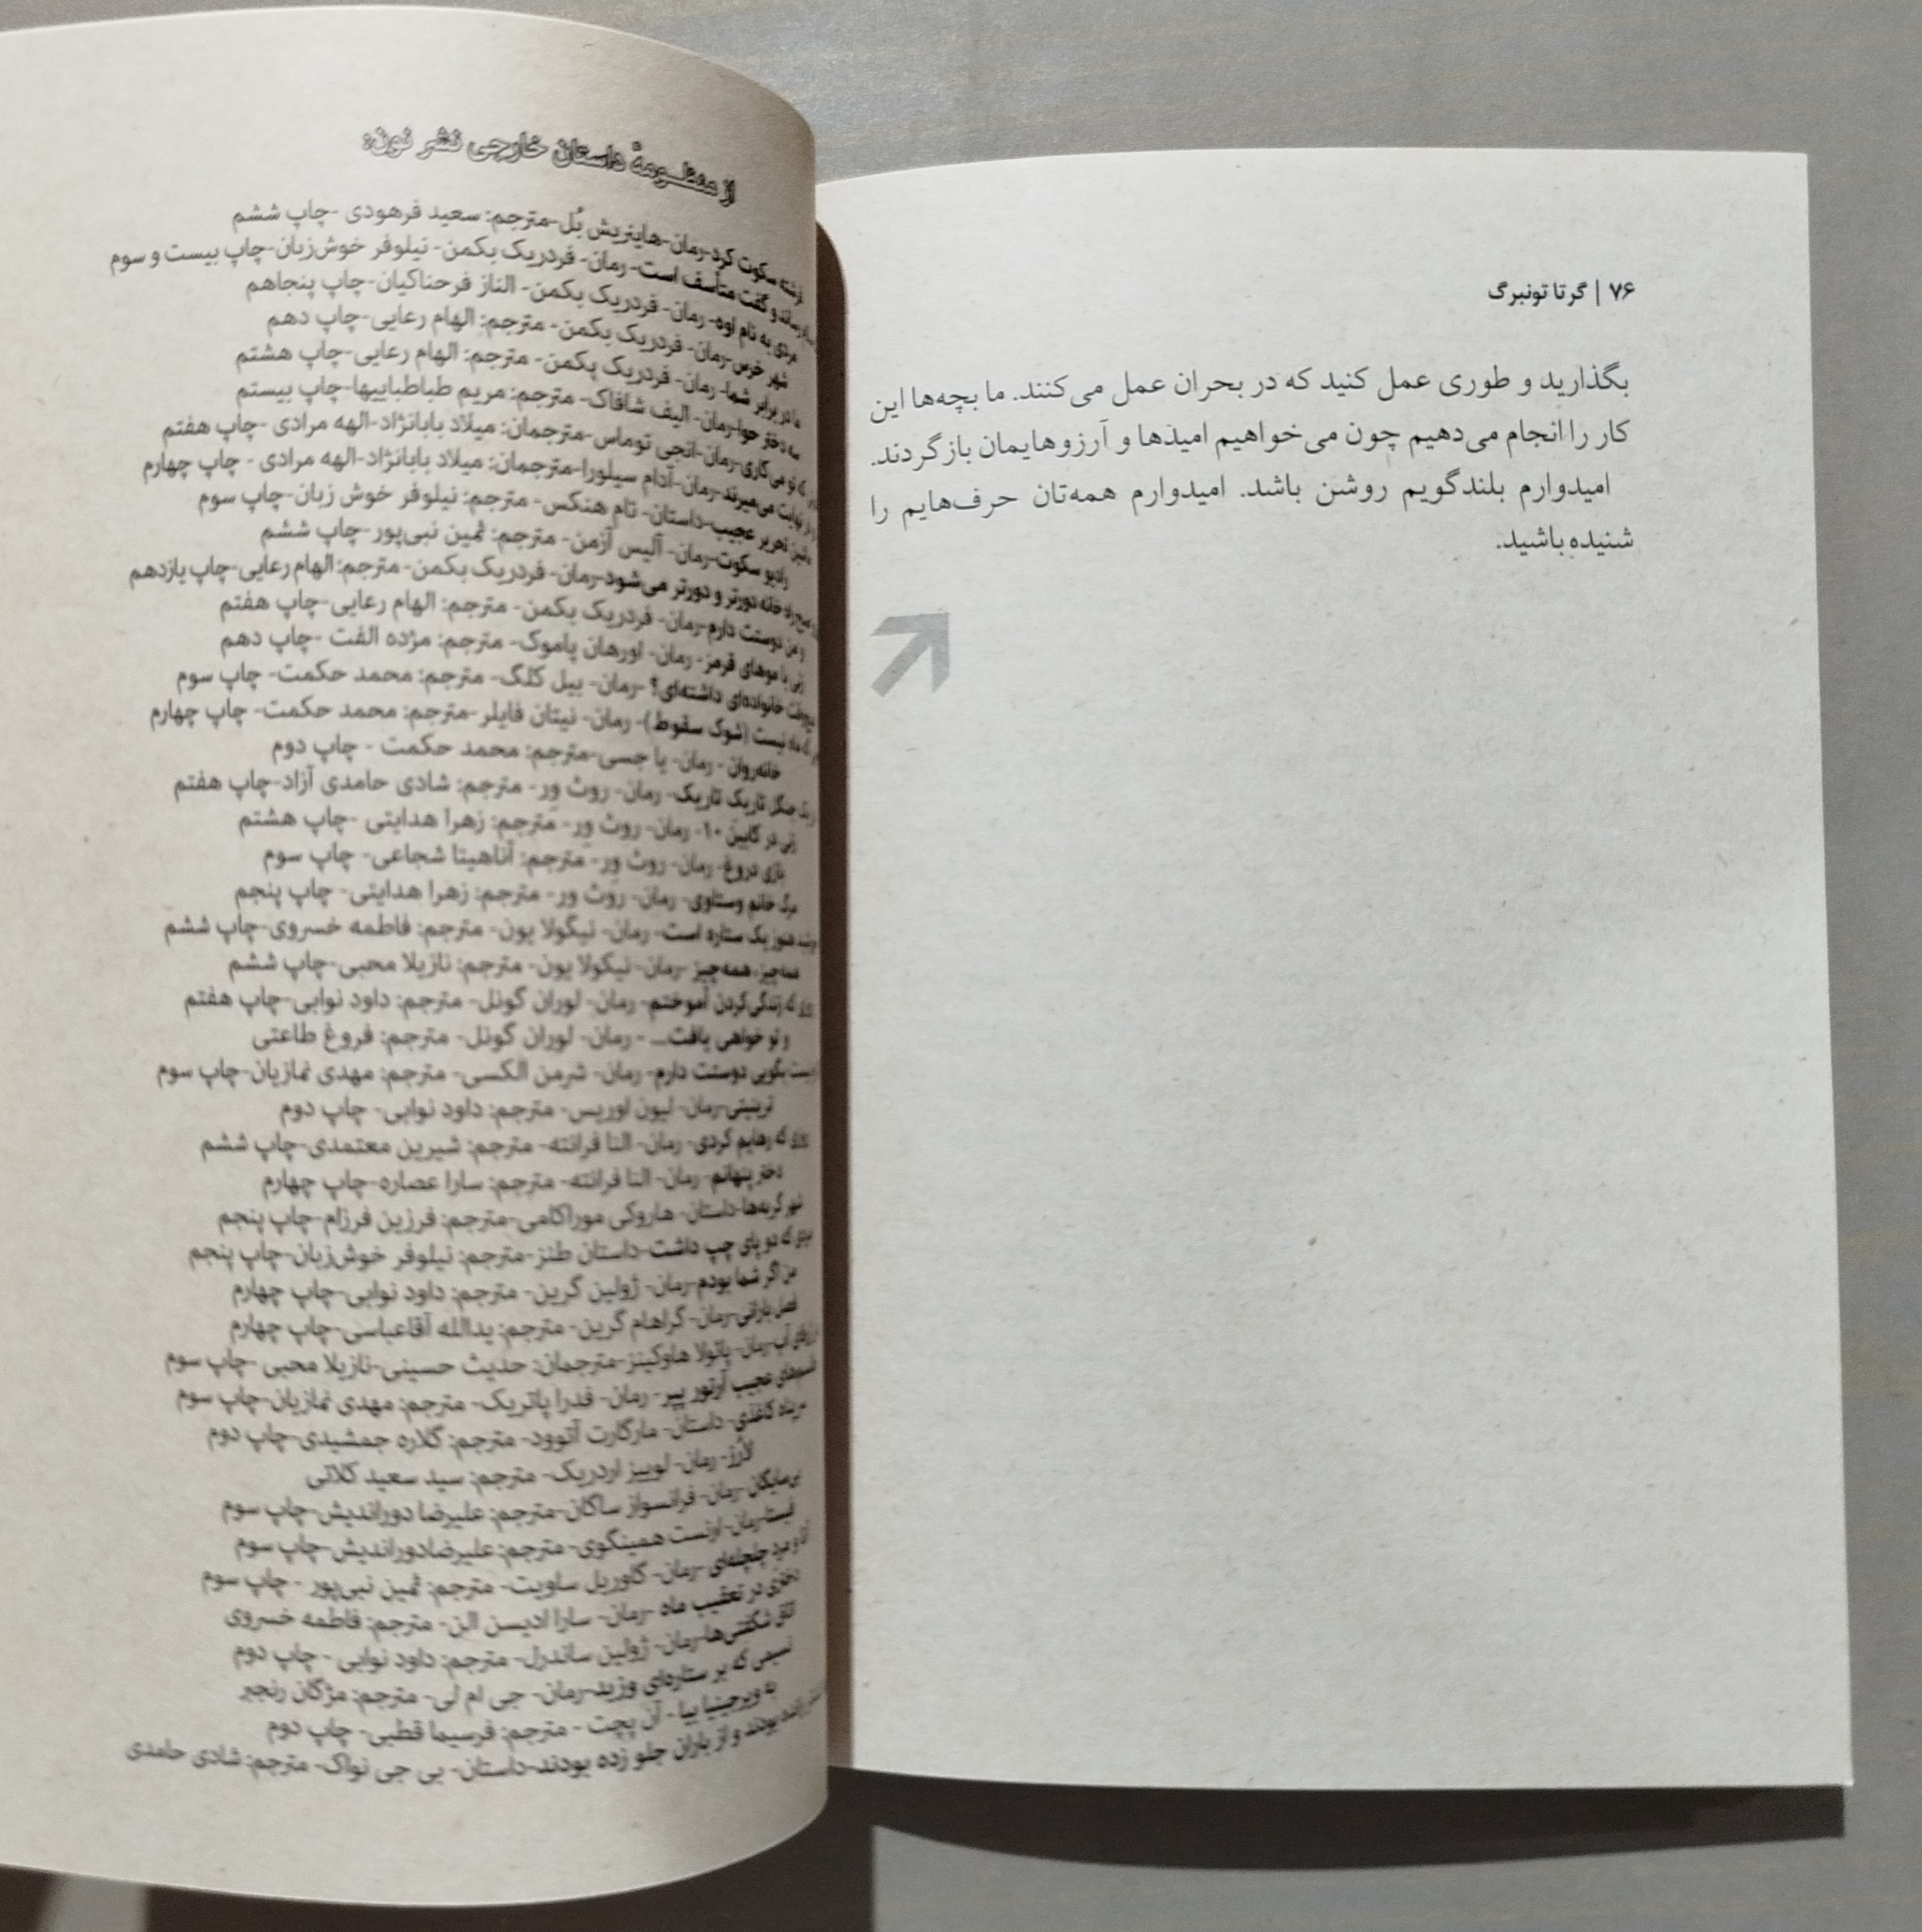 ۷۶ | گرتا تونبرگ
بگذارید و طوری عمل کنید که در بحران عمل می‌کنند. ما بچه‌ها این
کار را انجام می‌دهیم چون می‌خواهیم امیدها و آرزوهایمان بازگردند.
امیدوارم بلندگویم روشن باشد. امیدوارم همه‌تان حرف‌هایم را
شنیده باشید.
از منظومهٔ داستان خارجی نشر نون:
فرشته سکوت کرد-رمان-هاینریش بُل-مترجم: سعید فرهودی -چاپ ششم
رساند و گفت متأسف است- رمان- فردریک بکمن- نیلوفر خوش‌زبان-چاپ بیست و سوم
مردی به نام اوه- رمان- فردریک بکمن- الناز فرحناکیان-چاپ پنجاهم
شهر خرس-رمان- فردریک بکمن- مترجم: الهام رعایی-چاپ دهم
ما در برابر شما- رمان- فردریک پکمن- مترجم: الهام رعایی-چاپ هشتم
سه دختر حوا-رمان- الیف شافاک- مترجم: مریم طباطباییها-چاپ بیستم
که تو می‌کاری-رمان-انجی توماس-مترجمان: میلاد بابانژاد-الهه مرادی -چاپ هفتم
نهایت می‌میرند-رمان-آدام سیلورا-مترجمان: میلاد بابانژاد-الهه مرادی - چاپ چهارم
ماشین تحریر عجیب-داستان- تام هنکس- مترجم: نیلوفر خوش زبان-چاپ سوم
رادیو سکوت-رمان- آلیس آزمن- مترجم: ثمین نبی‌پور-چاپ ششم
صبح راه خانه دورتر و دورتر می‌شود-رمان- فردریک بکمن- مترجم: الهام رعایی-چاپ یازدهم
و من دوستت دارم-رمان- فردریک بکمن- مترجم: الهام رعایی-چاپ هفتم
زنی با موهای قرمز- رمان- اورهان پاموک- مترجم: مژده الفت -چاپ دهم
هیچ‌وقت خانواده‌ای داشته‌ای؟ -رمان- بیل کلگ- مترجم: محمد حکمت- چاپ سوم
ماه نیست (شوک سقوط)- رمان- نیتان فایلر-مترجم: محمد حکمت- چاپ چهارم
خانه‌روان - رمان- یا جسی-مترجم: محمد حکمت - چاپ دوم
جنگل تاریک تاریک- رمان- روث وِر- مترجم: شادی حامدی آزاد-چاپ هفتم
زنی در کابین ۱۰- رمان- روث وِر- مترجم: زهرا هدایتی -چاپ هشتم
بازی دروغ- رمان- روث وِر- مترجم: آناهیتا شجاعی- چاپ سوم
مرگ خانم وستاوی- رمان- روث ور- مترجم: زهرا هدایتی- چاپ پنجم
هنوز یک ستاره است- رمان- نیگولا یون- مترجم: فاطمه خسروی-چاپ ششم
همه‌چیز، همه‌چیز -رمان- نیکولا یون- مترجم: نازیلا محبی-چاپ ششم
روزی که زندگی کردن آموختم- رمان- لوران گونل- مترجم: داود نوابی-چاپ هفتم
و تو خواهی یافت... - رمان- لوران گونل- مترجم: فروغ طاعتی
بگویی دوستت دارم- رمان- شرمن الکسی- مترجم: مهدی نمازیان-چاپ سوم
ترینیتی-رمان- لیون اوریس- مترجم: داود نوابی- چاپ دوم
روزی که رهایم کردی- رمان- النا فرانته- مترجم: شیرین معتمدی-چاپ ششم
دختر پنهانم- رمان- النا فرانته- مترجم: سارا عصاره-چاپ چهارم
شهر گربه‌ها-داستان- هاروکی موراکامی-مترجم: فرزین فرزام-چاپ پنجم
مردی که دو پای چپ داشت-داستان طنز-مترجم: نیلوفر خوش‌زبان-چاپ پنجم
من اگر شما بودم-رمان- ژولین گرین- مترجم: داود نوابی-چاپ چهارم
فصل بارانی-رمان- گراهام گرین- مترجم: یدالله آقاعباسی-چاپ چهارم
آب-رمان- پائولا هاوکینز-مترجمان: حدیث حسینی-نازیلا محبی -چاپ سوم
عجیب آرتور پپر- رمان- فدرا پاتریک- مترجم: مهدی نمازیان-چاپ سوم
سرپناه کاغذی- داستان- مارگارت آتوود- مترجم: گلاره جمشیدی-چاپ دوم
لارُز- رمان- لوییز اردریک- مترجم: سید سعید کلاتی
بی‌مایگان-رمان- فرانسواز ساگان-مترجم: علیرضا دوراندیش-چاپ سوم
فیستا-رمان- ارنست همینگوی- مترجم: علیرضادوراندیش-چاپ سوم
آنا و مرد چلچله‌ای -رمان- گاوریل ساویت- مترجم: ثمین نبی‌پور - چاپ سوم
دختری در تعقیب ماه -رمان- سارا ادیسن الن- مترجم: فاطمه خسروی
اتاق شگفتی‌ها-رمان- ژولین ساندرل- مترجم: داود نوابی - چاپ دوم
نسیمی که بر ستاره‌ای وزید-رمان- جی ام لی- مترجم: مژگان رنجبر
به ویرجینیا بیا - آن پچت - مترجم: فرسیما قطبی- چاپ دوم
رانده بودند و از باران جلو زده بودند-داستان- بی جی نواک- مترجم: شادی حامدی